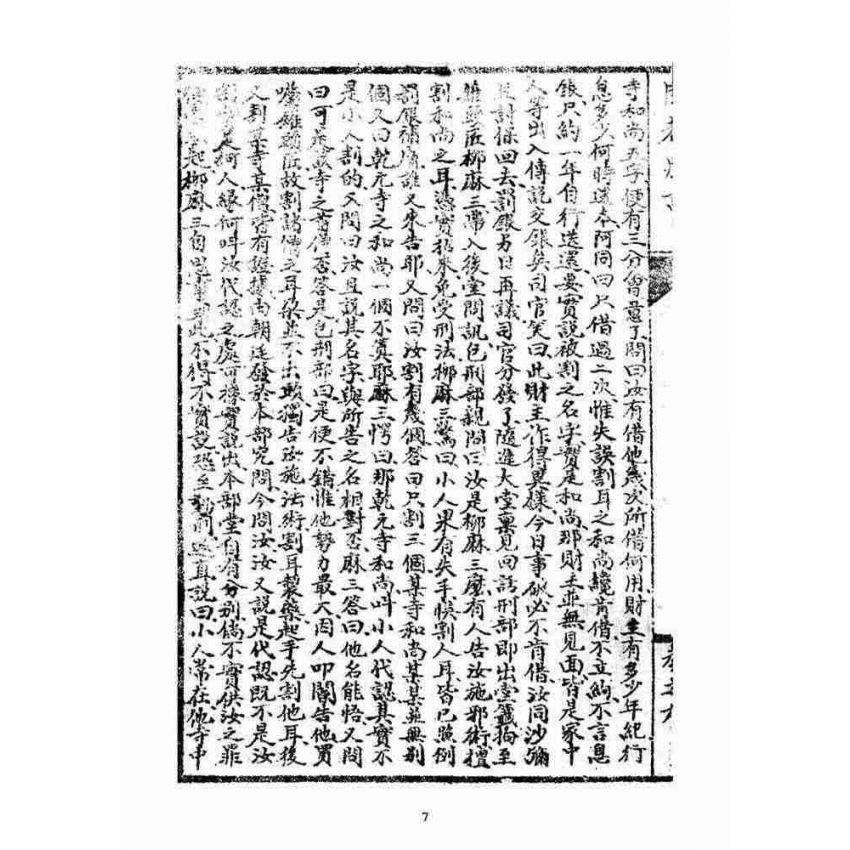 寺和尚五字便有三分曾意了問曰汝有借他幾次所借何用財主有多少年紀行
息多少何時還本阿同曰只借過二次惟失誤割耳之和尚纔肯借不立絇不言息
銀只約一年自行送還要實說被割之名字實是和尚那財主並無見面皆是家中
人等出入傳說交銀矣司官笑曰此財主作得異樣今日事破必不肯借汝同沙彌
且討保回去罰銀另日再議司官分發了隨進大堂稟見回話刑部即出堂籤拘至
雜頭匠柳麻三帶入後堂問訊包刑部親問曰汝是柳麻三麼有人告汝施邪術擅
割和尚之耳憑實招來免受刑法柳麻三驚曰小人果有失手悞割人耳皆已照例
罰銀補虜誰又來告耶又問曰汝割有幾個答曰只割三個某寺和尚某某並無別
個又曰乾元寺之和尚一個不真耶麻三愕曰那乾元寺和尚叫小人代認其實不
是小人割的又問曰汝且說其名字與所告之名相對否麻三答曰他名能悟又問
曰可是該寺之首僧否答是包刑部曰是便不錯惟他勢力最大因人叩閽告他買
囑雜頭匠故割諸僧之耳染並不出欵獨告汝施法術割耳製藥起手先割他耳後
又割某寺某僧皆有據攄尚朝廷發於本部究問今問汝汝又說是代認既不是汝
割是何人緣何叫汝代認之處可據實說出本部堂自有分別倘不實供汝之罪
起柳麻三自思事到此不得不實說恐至動刑照直說曰小人常在他寺中
7